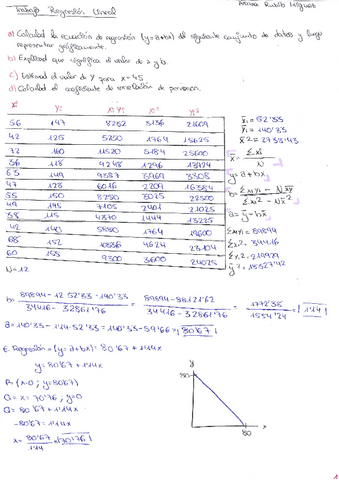 Trabajo Regresión Lineal
a) Calcular la ecuación de regresión (y=a+bx) del siguiente conjunto de datos y luego
representar gráficamente.
b) Explicad que significa el valor de a y b.
c) Estimad el valor de Y para x=45
d) Calculad el coeficiente de correlación de pearson.
Xi Yi Xi·Yi Xi² Yi²
56 147 8232 3136 21609
42 125 5250 1764 15625
72 160 11520 5184 25600
36 118 4248 1296 13924
63 149 9387 3969
47 128 6016 2209 16384
55 150 8250 3025 22500
49 145 7105 2401 21025
38 115 4370 1444 13225
42 140 5880 1764 19600
68 152 10336 4624 23104
60 155 9300 3600 24025
N=12
x̄ = Σxi / N
y = a+bx
b = Σxiyi - Nx̄ȳ / Σxi² - Nx̄²
a = ȳ - bx̄
Σxiyi = 89894
Σxi² = 34416
b = 89894-12·52'33·140'33 / 34416-32861'76 = 89894-88121'62 / 34416-32861'76 = 1772'38 / 1554'24 = 1'14
a = 140'33-1'14·52'33 = 140'33-59'66 = 80'67
E. Regresión = (y=a+bx) = 80'67 + 1'14x
y = 80'67 + 1'14x
P. (x=0; y=80'67)
Q = x = 70'76; y=0
0 = 80'67 + 1'14x
-80'67 = 1'14x
x = 80'67 / 1'14 = 70'76
y
80
x
1